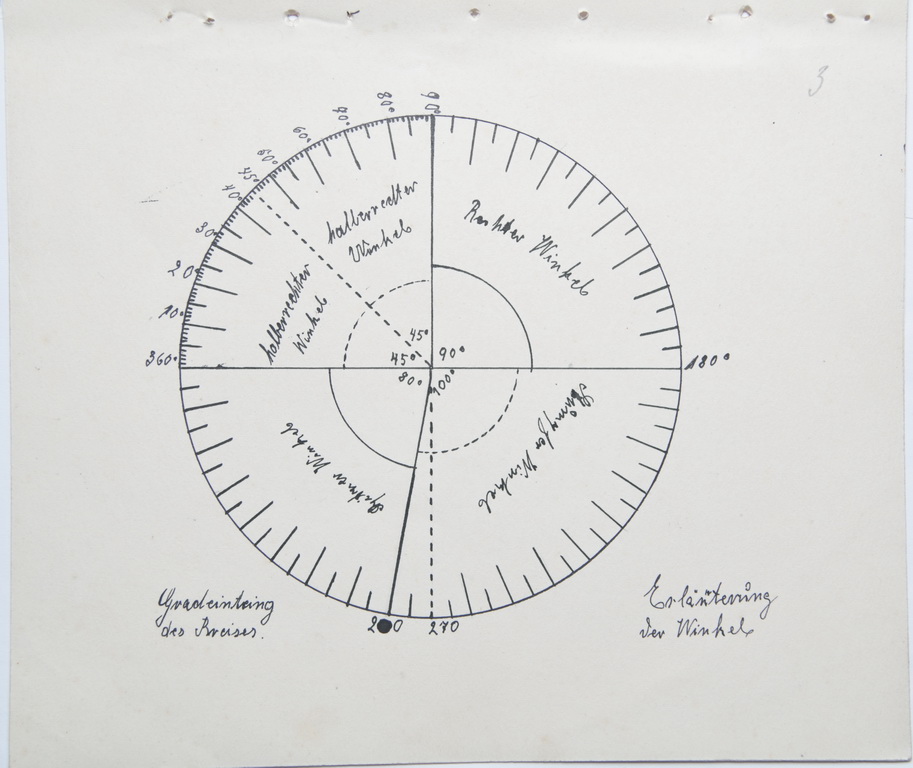 3
90
80°
70°
60°
50°
45°
40°
30°
20°
10°
360°
180°
halbrechter
Winkel
Rechter Winkel
halbrechter
Winkel
45°
45°
90°
80°
100°
Spitzer Winkel
Stumpfer Winkel
270
Gradeinteing
des Kreises.
Erläuterung
der Winkel